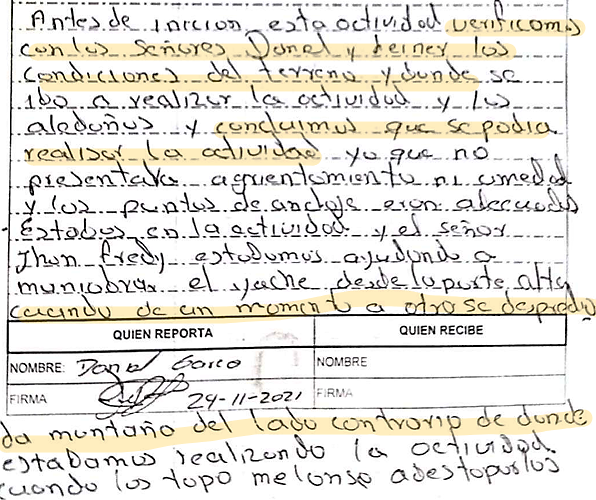 Antes de inicion esta actividad verificamos
con los Señores Danel y heiner los
Condiciones del terreno y donde se
iba a realizar la actividad y los
aledoños y concluimos que se podia
realisar la actividad ya que no
presentava agrientamiento ni umedad
y los puntos de anclaje eran adecuados
Estabos en la actividad y el señor
Jhon fredy estabamos ayudando a
maniobrar el yache desde la parte alta
cuando de un momento a otro se despredio
QUIEN REPORTA QUIEN RECIBE
NOMBRE: Danel NOMBRE
FIRMA 24-11-2021 FIRMA
da montaño del lado contrario de donde
estabamos realizando la actividad
cuando los tapo me lanse a destaparlos